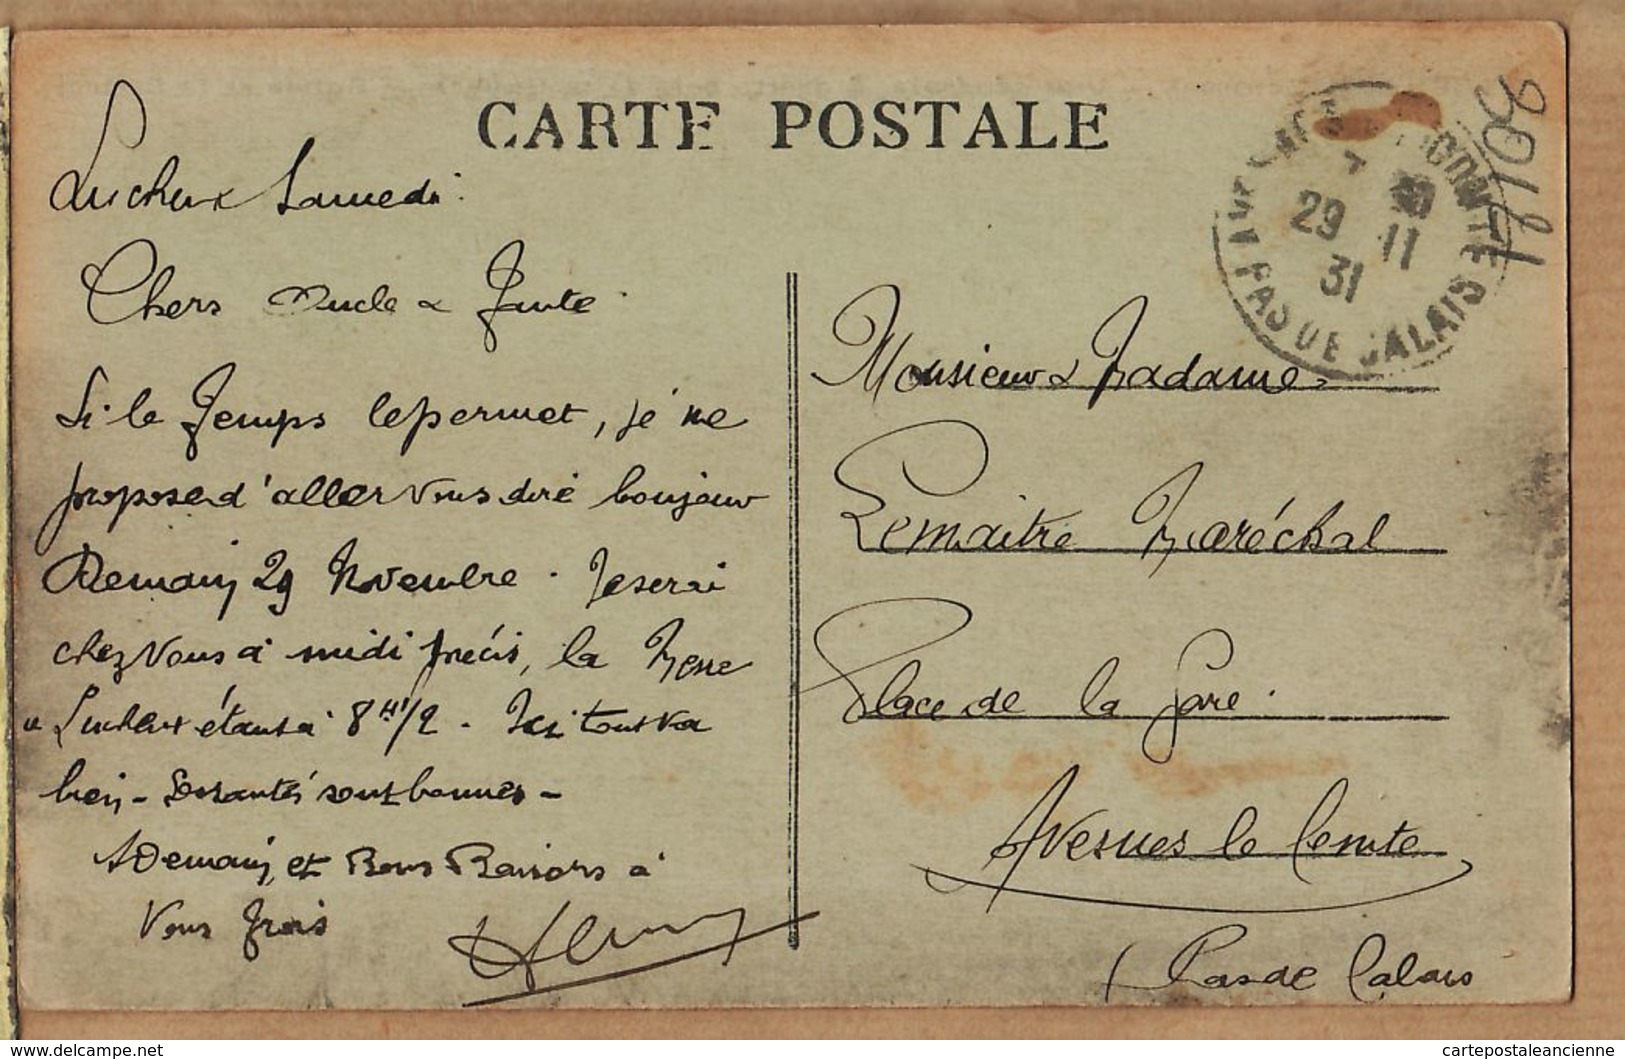 CARTE POSTALE
Lucheux Samedi
Chers Oncle & Tante
Si le Temps le permet, je me
propose d'aller vous dire bonjour
Demain 29 Novembre. Je serai
chez vous à midi précis, la Messe
à Lucheux étant à 8 H 1/2 - Ici tout va
bien - Les santés sont bonnes -
A Demain, et Bons Baisers à
Vous trois
Henri
29 11
31
PAS DE CALAIS
Monsieur & Madame
Lemaitre Maréchal
Place de la Gare
Avesnes le Comte
Pas de Calais
www.delcampe.net
cartepostaleancienne